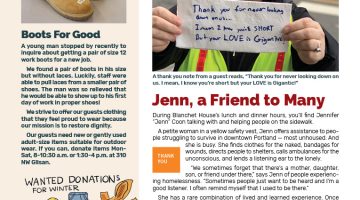 Boots For Good
A young man stopped by recently to
inquire about getting a pair of size 12
work boots for a new job.
We found a pair of boots in his size
but without laces. Luckily, staff were
able to pull laces from a smaller pair of
shoes. The man was so relieved that
he would be able to show up to his first
day of work in proper shoes!
We strive to offer our guests clothing
that they feel proud to wear because
our mission is to restore dignity.
Our guests need new or gently used
adult-size items suitable for outdoor
wear. If you can, donate items Mon-
Sat, 8-10:30 a.m. or 1:30-4 p.m. at 310
NW Glisan.
WANTED DONATIONS
FOR WINTER
Thank you for never looking
down on us.
I mean I know you're SHORT
But your LOVE is Gigantic!
A thank you note from a guest reads, "Thank you for never looking down on
us. I mean, I know you're short but your LOVE is Gigantic!"
Jenn, a Friend to Many
During Blanchet House's lunch and dinner hours, you'll find Jennifer
"Jenn" Coon talking with and helping people on the streets.
A petite woman in a yellow safety vest, Jenn offers assistance to peo-
ple struggling to survive in downtown Portland — most unhoused. And
she is busy. She finds clothes for the naked, bandages for
wounds, directs people to shelters, calls ambulances for the
unconscious, and lends a listening ear to the lonely.
THANK
YOU
"We sometimes forget that there's a mother, daughter,
son, or friend under there," says Jenn of people experienc-
ing homelessness. "Sometimes people just want to be heard and I'm a
good listener. I often remind myself that I used to be there."
She has a rare combination of lived and learned experience. Once